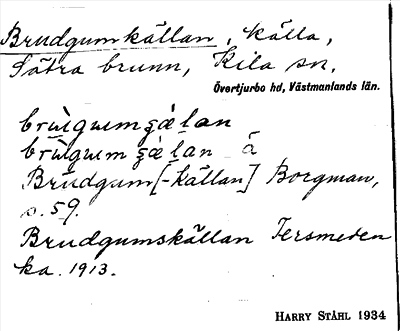 Brudgumkällan, källa,
Sätra brunn, Kila sn,
Övertjurbo hd, Västmanlands län.
brùi̯gɯmʒǽlan
brùi̯gɯmʒǽlan ä
Brudgum[-källan] Borgman,
s. 59.
Brudgumskällan Tersmeden
ka. 1913.
HARRY STÅHL 1934